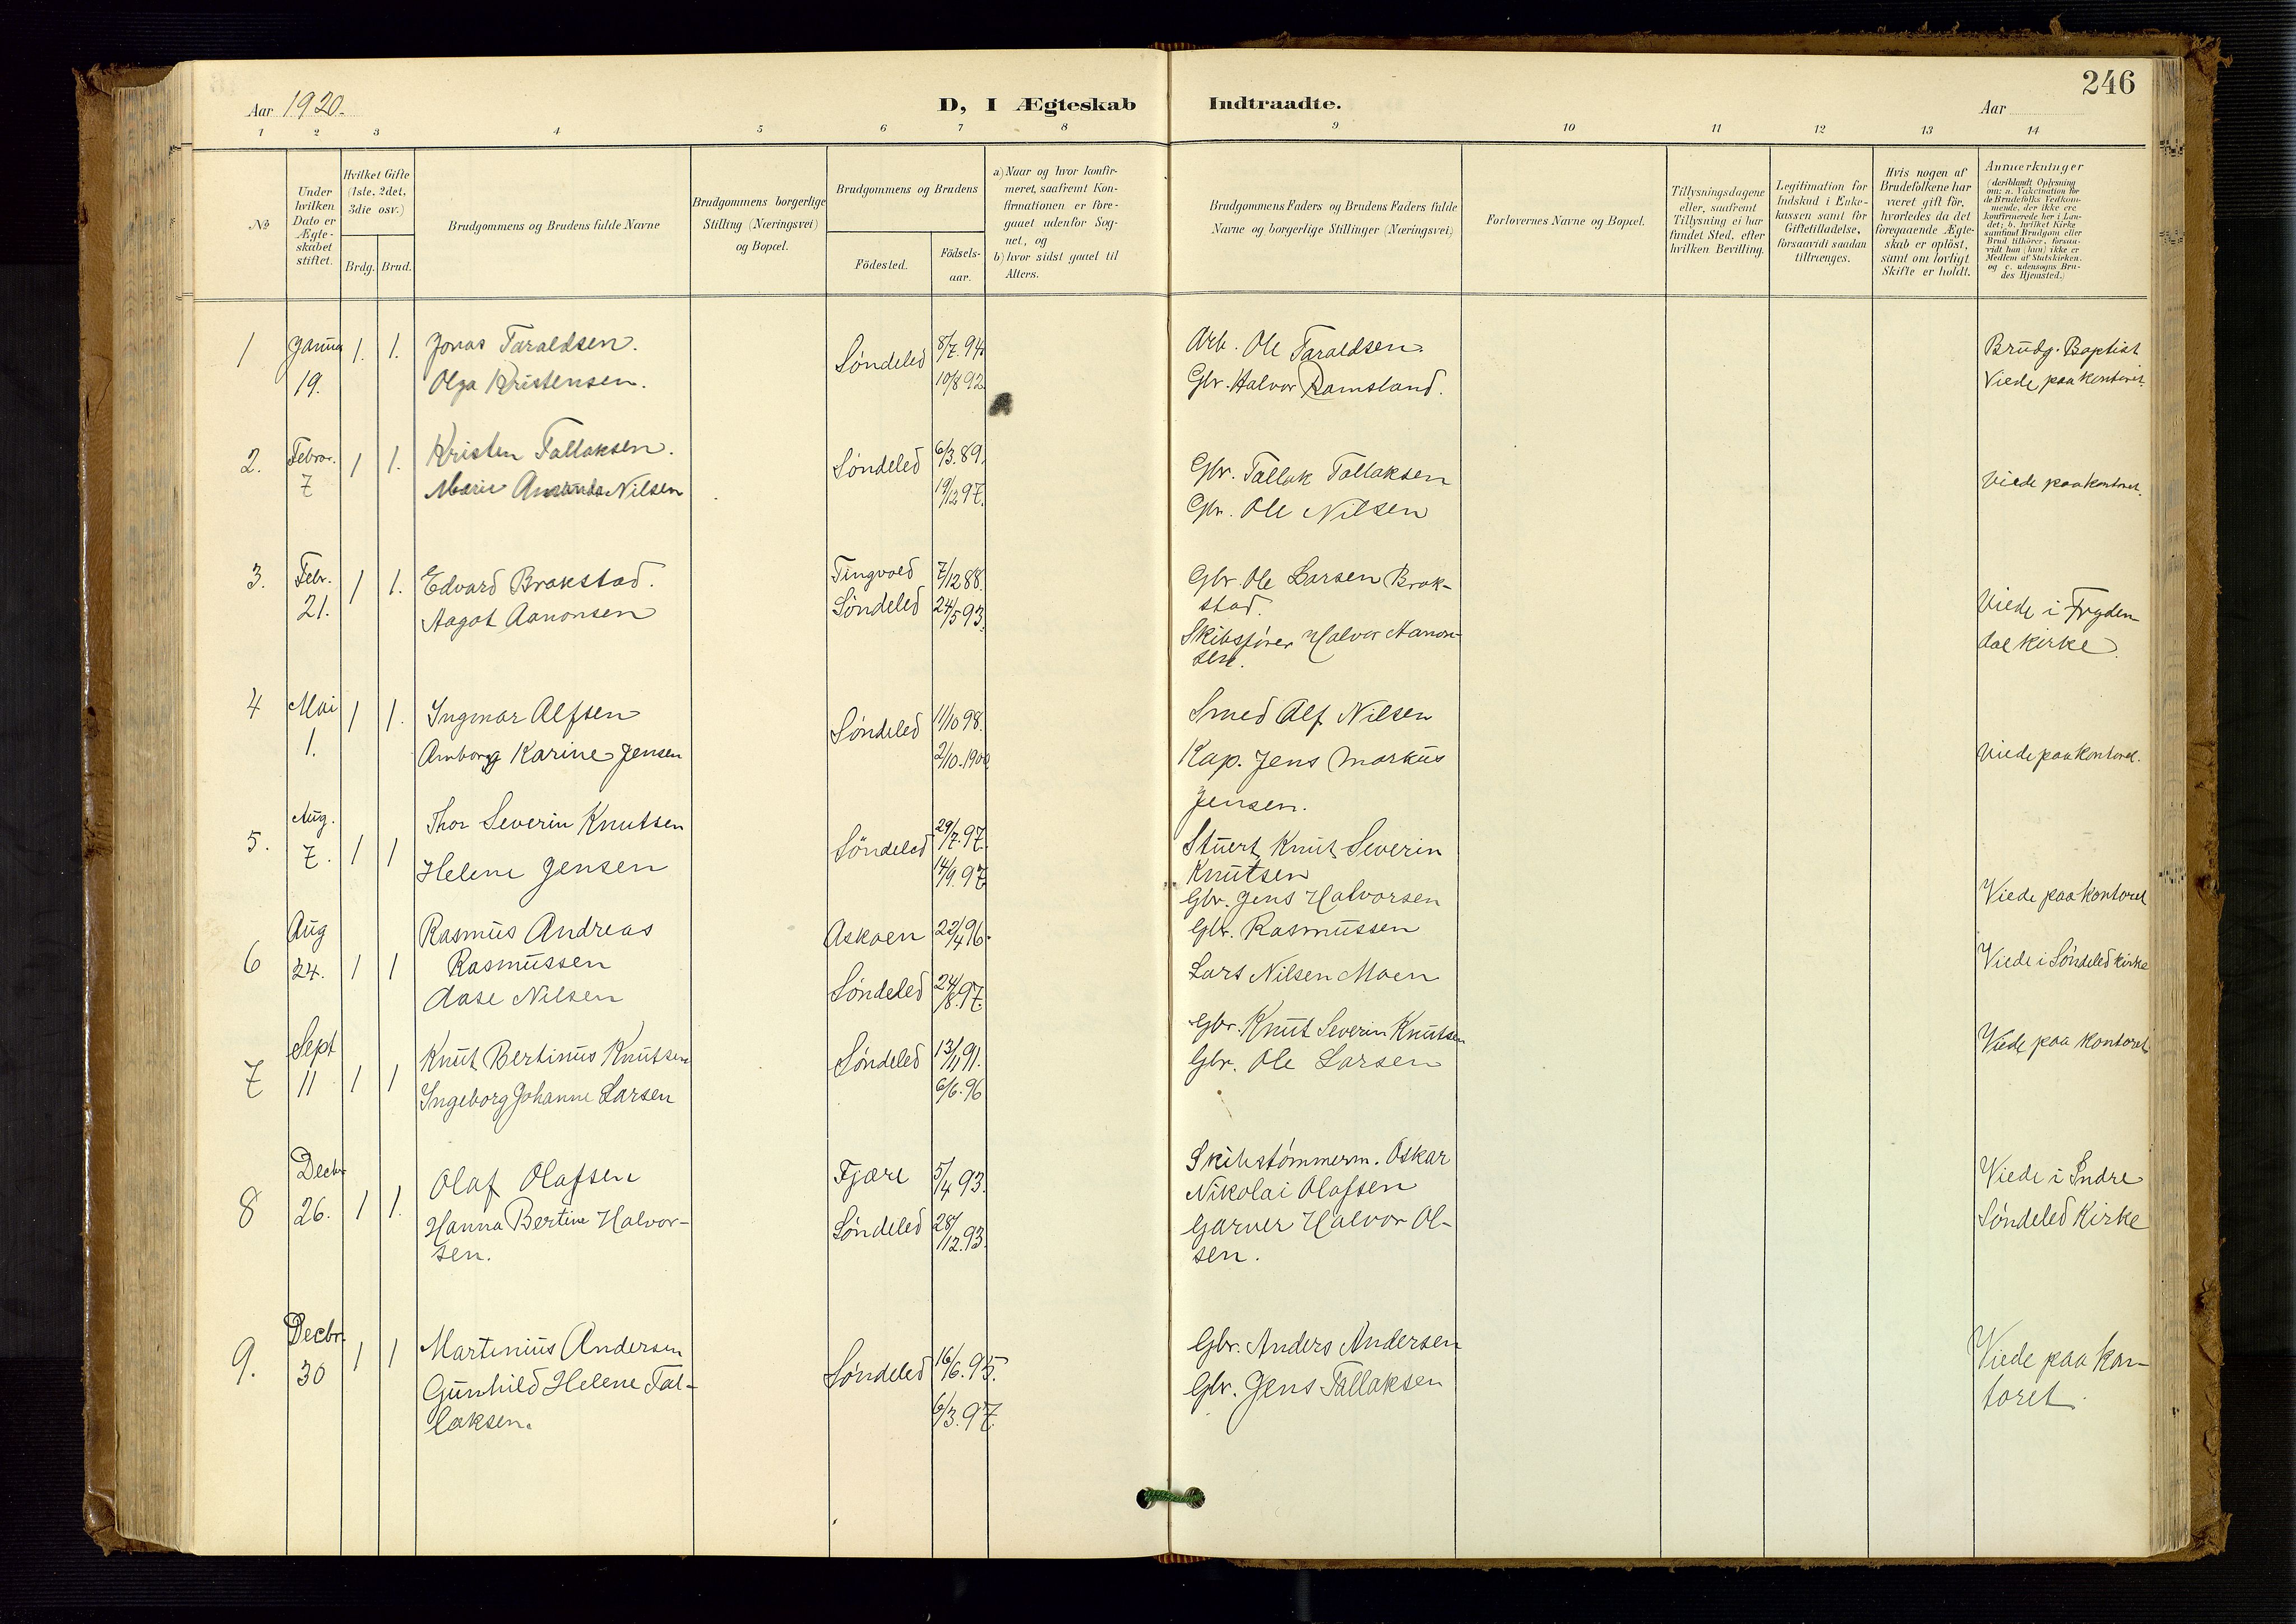 246
Aar 1920.
D, I Ægteskab Indtraadte.
Aar
1 2 3 4 5 6 7 8 9 10 11 12 13 14
No
Under
hvilken
Dato er
Ægte-
skabet
stiftet.
Hvilket Gifte
(1ste, 2det,
3die osv.)
Brdg. Brud.
Brudgommens og Brudens fulde Navne
Brudgommens borgerlige
Stilling (Næringsvei)
og Bopæl.
Brudgommens og Brudens
Födested.
Födsels-
aar.
a) Naar og hvor konfir-
meret, saafremt Kon-
firmationen er fore-
gaaet udenfor Sog-
net, og
b) hvor sidst gaaet til
Alters.
Brudgommens Faders og Brudens Faders fulde
Navne og borgerlige Stillinger (Næringsvei)
Forlovernes Navne og Bopæl.
Tillysningsdagene
eller, saafremt
Tillysning ei har
fundet Sted, efter
hvilken Bevilling.
Legitimation for
Indskud i Enke-
kassen samt for
Giftetilladelse,
forsaavidt saadan
tiltrænges.
Hvis nogen af
Brudefolkene har
været gift för,
hvorledes da det
foregaaende Ægte-
skab er oplöst,
samt om lovligt
Skifte er holdt.
Anmerkninger
(deriblandt Oplysning
om: a. Vakcination for
de Brudefolks Vedkom-
mende, der ikke ere
konfirmerede her i Lan-
det; b. hvilket Kirke
samfund Brudgom eller
Brud tilhörer, forsaa-
vidt han (hun) ikke er
Medlem af Statskirken.
og c. udensogns Bru-
des Hjemsted.)
1 Janua 1. 1. Jonas Taraldsen. Søndeled 8/7. 94. Arb. Ole Taraldsen. Brudg. Baptist
19. Olga Kristensen. 10/8 92. Gbr. Halvor Ramsland. Viede paa kontoret.
2. Febrar. 1 1. Kristen Tallaksen. Søndeled 6/3. 89. Gbr. Tallak Tallaksen
7 Marie Amanda Nilsen 19/12 97. Gbr. Ole Nilsen Viede paa kontoret.
3. Febr. 1 1. Edvard Brakstad. Tingvold 7/12 88. Gbr. Ole Larsen Brak-
stad.
21. Aagot Aanonsen Søndeled 24/5 93. Skibsfører Halvor Aanon-
sen.
Viede i Fryden-
dal kirke.
4 Mai 1 1. Ingmar Alfsen Søndeled 11/10 98. Smed Alf Nilsen
1. Amborg Karine Jensen 2/10. 1900 Kap. Jens Markus Viede paa kontoret.
Jensen.
5. Aug. 1 1 Thor Severin Knutsen Søndeled 29/7. 97. Stuert Knut Severin
Knutsen
7. Helene Jensen 14/9. 97. Gbr. Jens Halvorsen Viede paa kontoret
6 Aug 1 1 Rasmus Andreas Askøen 22/4 96. Gbr. Rasmussen
24. Rasmussen Lars Nilsen Moen Viede i Søndeled kirke
Aase Nilsen Søndeled 24/8. 97.
7 Sept 1 1 Knut Bertinus Knutsen Søndeled 13/11 91. Gbr. Knut Severin Knutsen Viede paa kontoret
11 Ingeborg Johanne Larsen 6/6. 96 Gbr. Ole Larsen
8 Decbr 1 1. Olaf Olafsen Fjære 5/4 93. Skibstømmerm. Oskar
Nikolai Olafsen
26. Hanna Bertine Halvor-
sen.
Søndeled 28/12. 93. Garver Halvor Ol-
sen.
Viede i Indre
Søndeled Kirke
9. Decbr. 1 1 Martinius Andersen Søndeled 16/6. 95. Gbr. Anders Andersen
30 Gunhild Helene Tal-
laksen.
6/3. 97. Gbr. Jens Tallaksen
Viede paa kon-
toret.